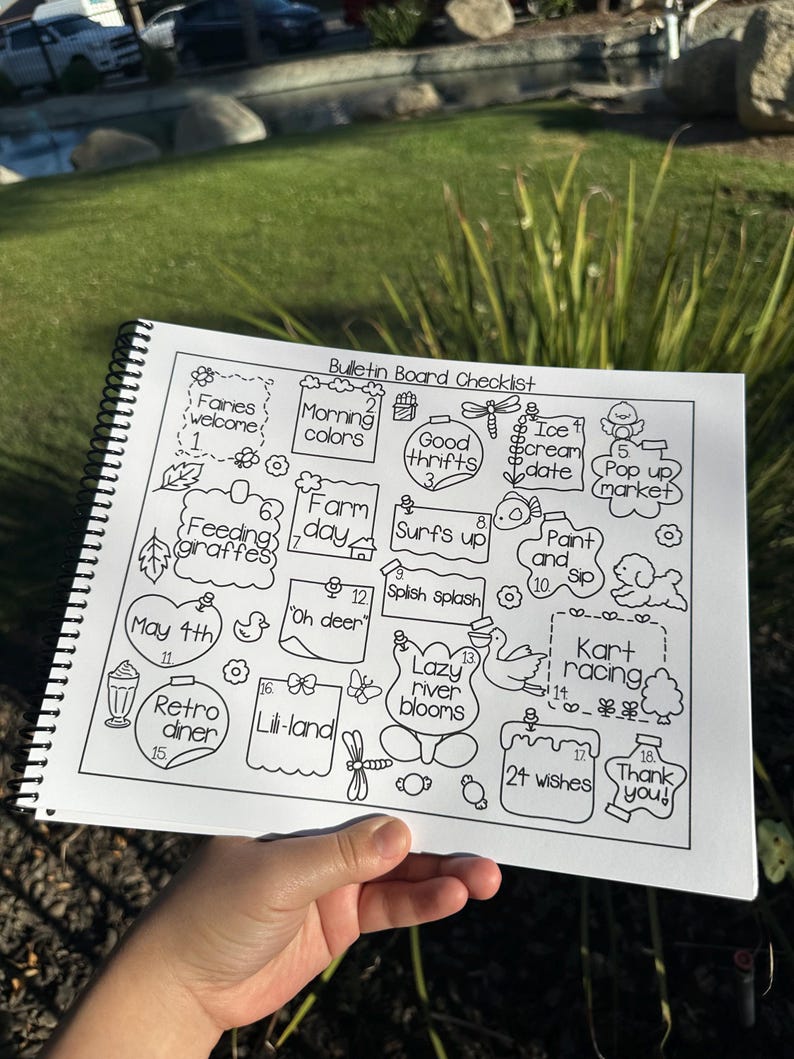 Bulletin Board Checklist
Fairies
welcome
1
2
Morning
colors
Good
thrifts
3
Ice 4
cream
date
5.
Pop up
market
6
Feeding
giraffes
Farm
day
7.
8
Surfs up
9.
Splish splash
Paint
and
sip
10.
May 4th
11.
12.
"Oh deer"
13.
Lazy
river
blooms
Kart
racing
14.
Retro
diner
15.
16.
Lili-land
17.
24 wishes
18.
Thank
you!